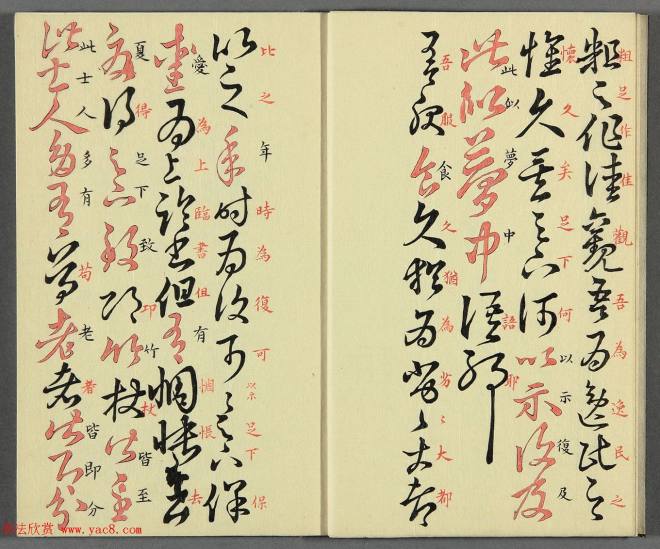 粗足作佳觀吾為逸民之
懷久矣足下何以示復及
此似夢中語耶
吾服食久猶為劣〻大都
比之年時為復可〻足下保
愛為上臨書但有惆悵去
夏得足下致邛竹杖皆至
此士人多有苟老者皆即分
www.yac8.com